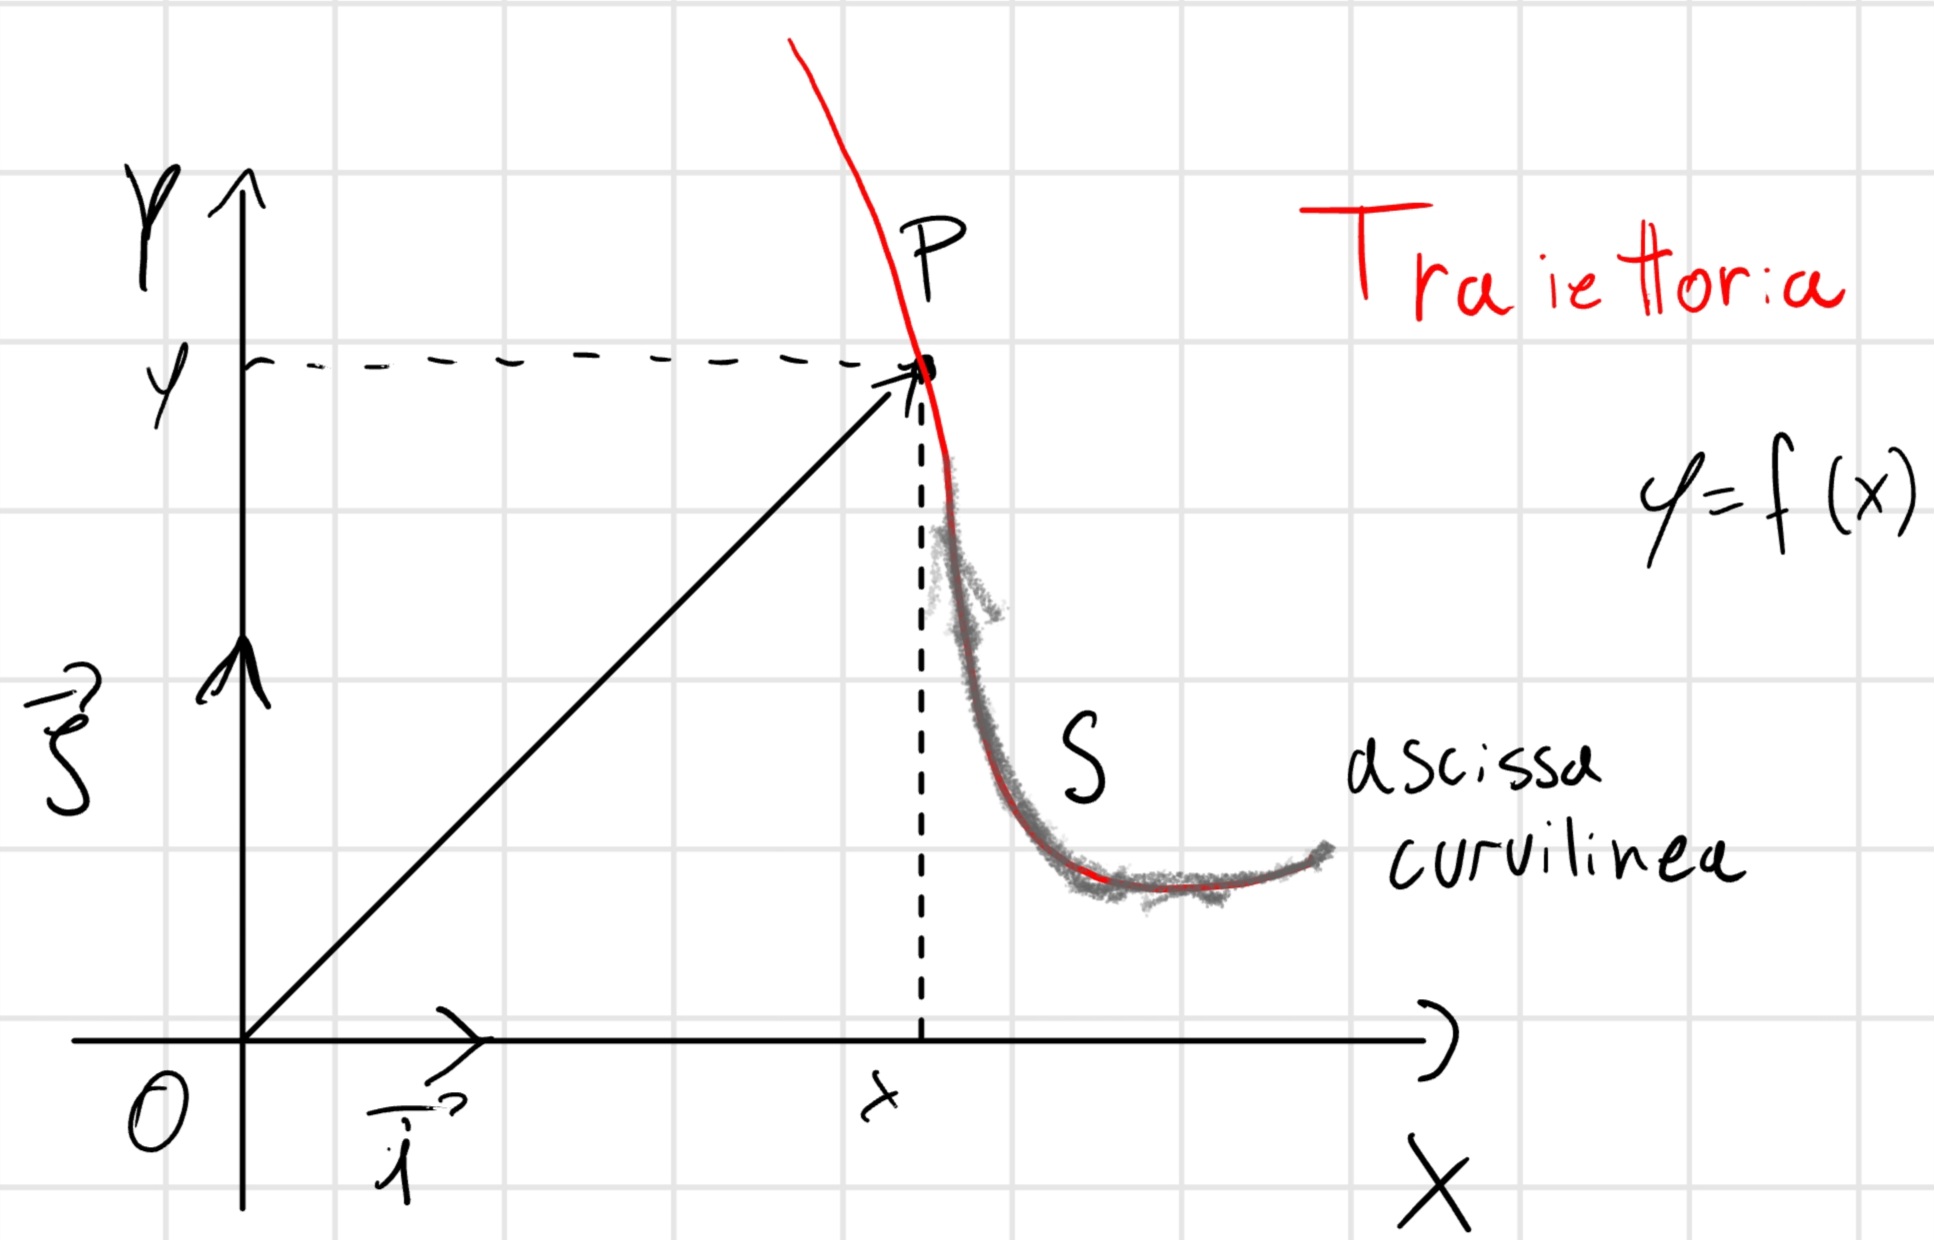 Y
P
Traiettoria
y
y = f(x)
S
ascissa
curvilinea
O
x
i
X